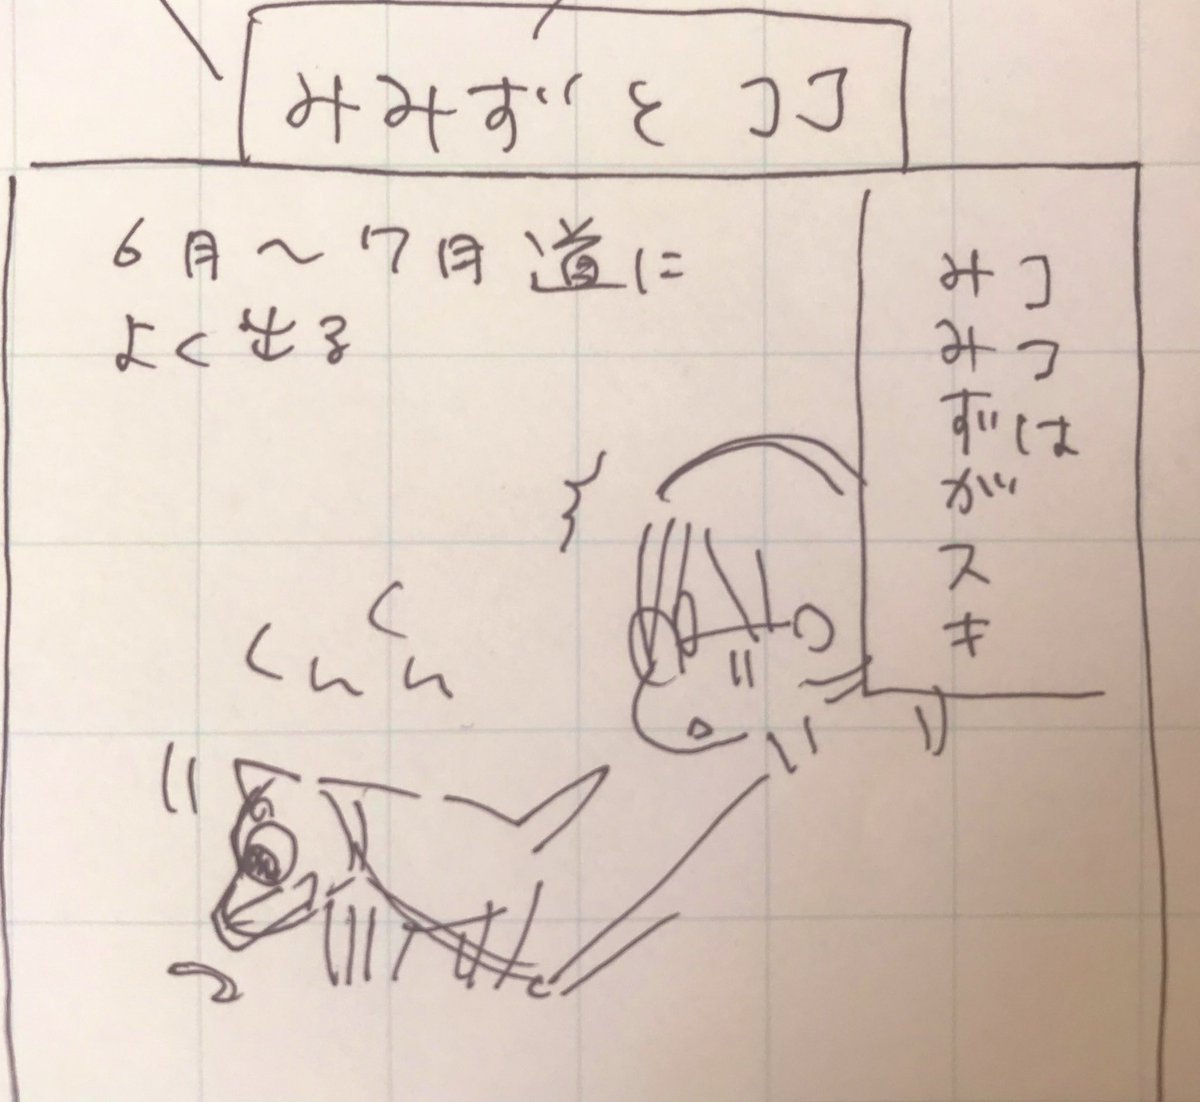 みみずとココ
ココは
みみずがスキ
6月～7月道に
よく出る
くんくん